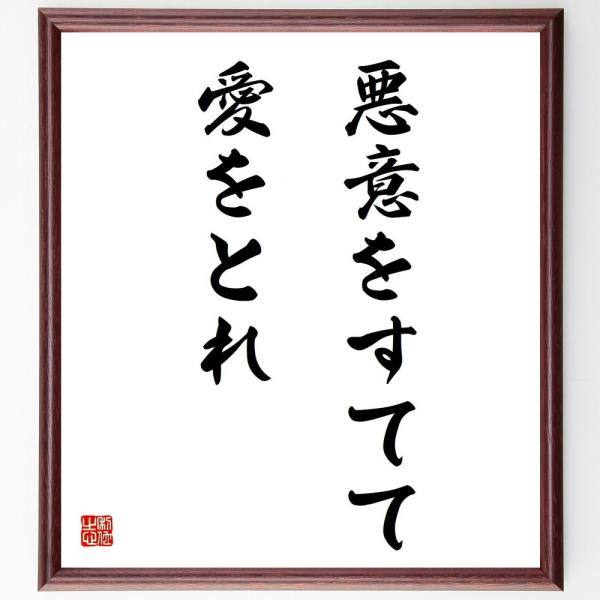 悪意をすてて
愛をとれ